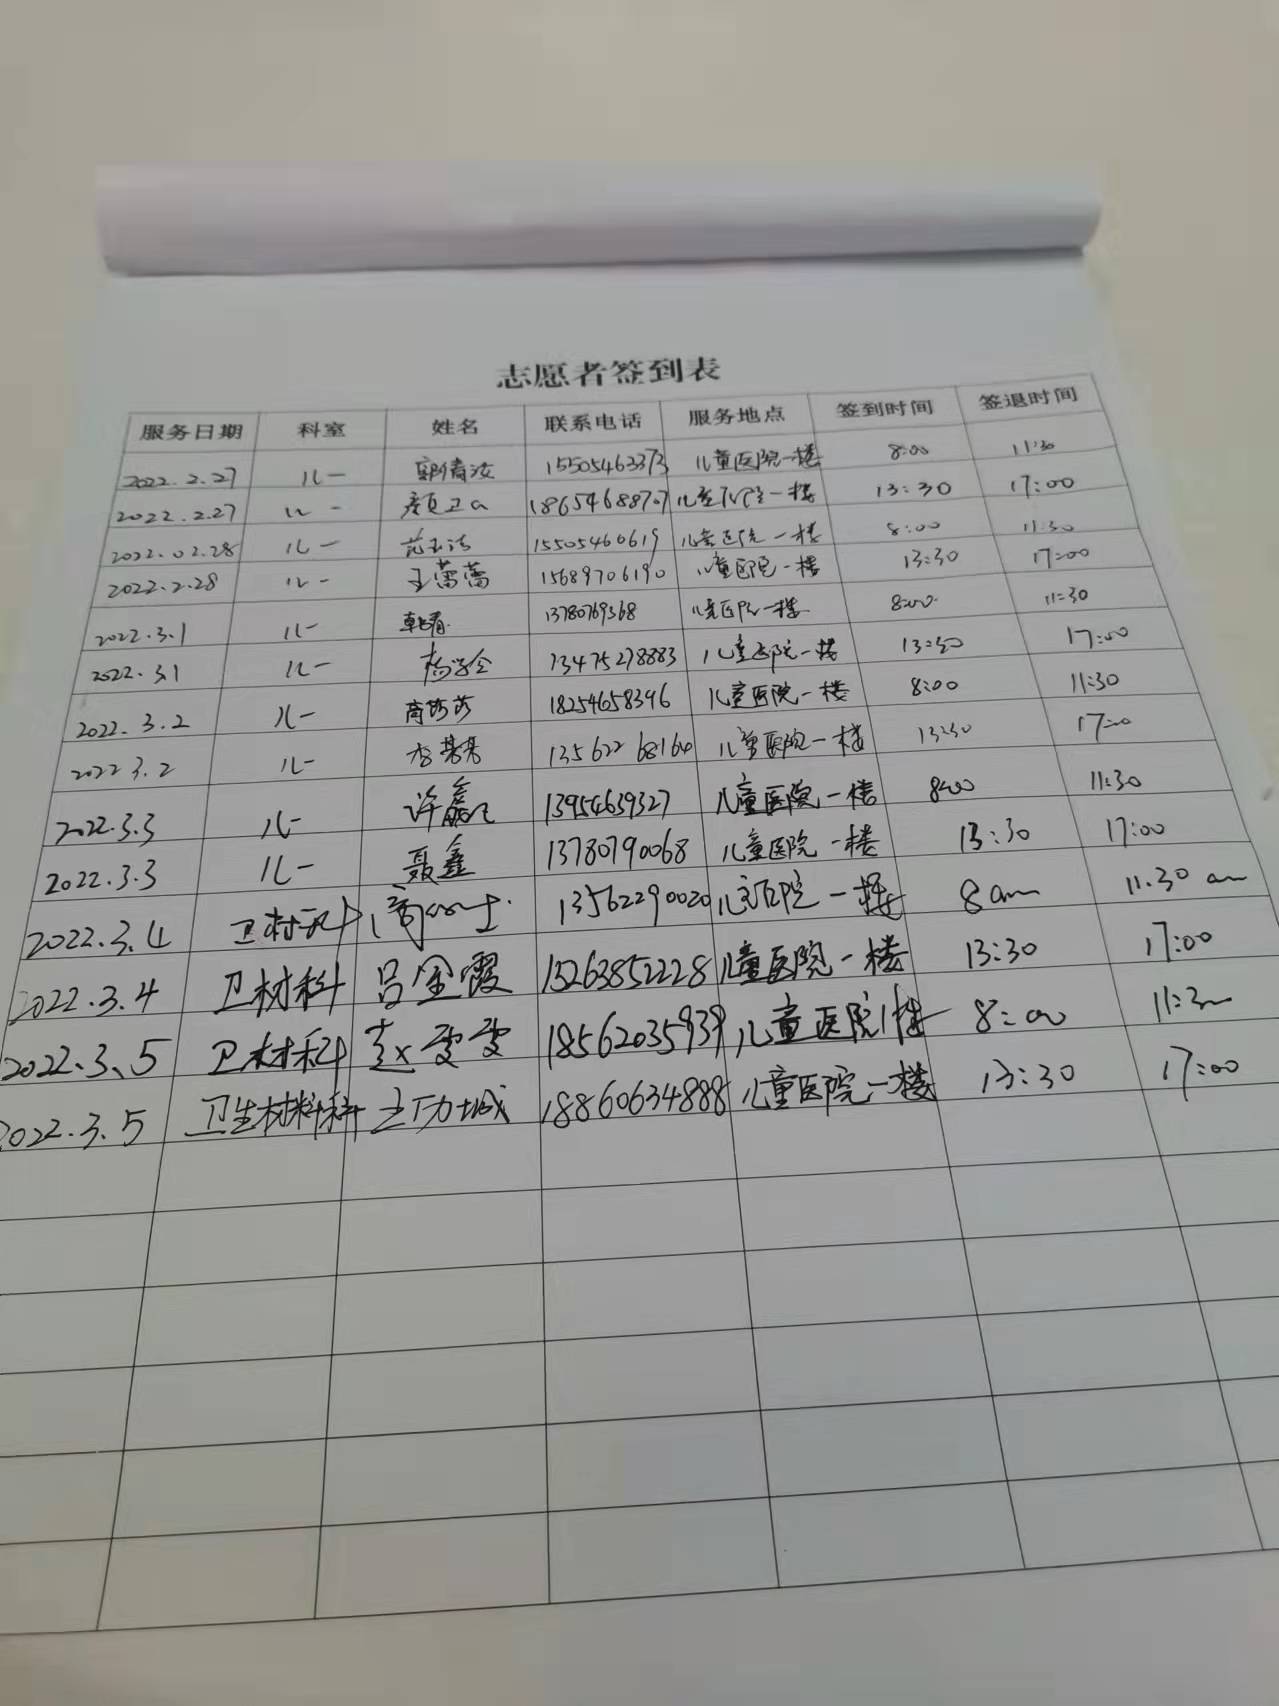 志愿者签到表
服务日期 科室 姓名 联系电话 服务地点 签到时间 签退时间
2022.2.27 儿一 15505463373 儿童医院一楼 8:00 11:30
2022.2.27 儿一 18654688707 一楼 13:30 17:00
2022.02.28 儿一 15505460619 儿童医院一楼 8:00 11:30
2022.2.28 儿一 王蕾蕾 15689706190 儿童医院一楼 13:30 17:00
2022.3.1 儿一 13780769368 儿童医院一楼 8:00 11:30
2022.3.1 儿一 13475278883 儿童医院一楼 13:30 17:00
2022.3.2 儿一 商莎莎 18254658396 儿童医院一楼 8:00 11:30
2022 3.2 儿一 13562268164 儿童医院一楼 13:30 17:00
2022.3.3 儿一 许鑫 13954639327 儿童医院一楼 8:00 11:30
2022.3.3 儿一 聂鑫 13780790068 儿童医院一楼 13:30 17:00
2022.3.4 卫材科 13562290020 儿童医院一楼 8am 11.30 am
2022.3.4 卫材科 吕金霞 15263852228 儿童医院一楼 13:30 17:00
2022.3.5 卫材科 赵雯雯 18562035939 儿童医院1楼 8:00 11:30
2022.3.5 卫生材料科 18860634888 儿童医院一楼 13:30 17:00